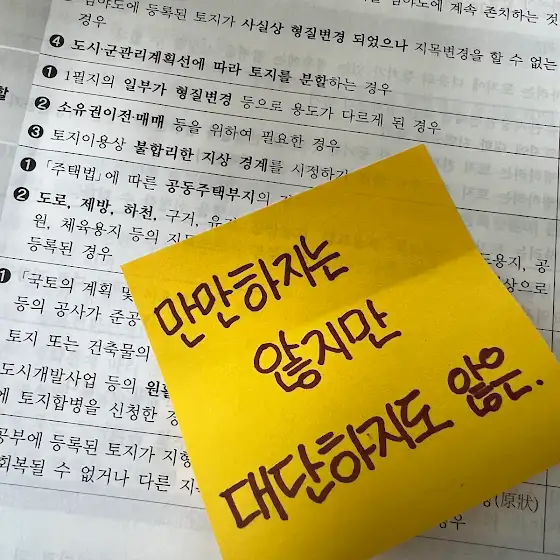 임야도에 등록된 토지가 사실상 형질변경 되었으나 지목변경을 할 수 없는
경우
❹ 도시·군관리계획선에 따라 토지를 분할하는 경우
❶ 1필지의 일부가 형질변경 등으로 용도가 다르게 된 경우
❷ 소유권이전·매매 등을 위하여 필요한 경우
❸ 토지이용상 불합리한 지상 경계를 시정하기
❶ 「주택법」에 따른 공동주택부지의
❷ 도로, 제방, 하천, 구거,
원, 체육용지 등의
등록된 경우
❶ 「국토의 계획 및
등의 공사가
토지 또는 건축물의
도시개발사업 등의
토지합병을 신청한
공부에 등록된 토지가
회복될 수 없거나 다른
(原狀)
경우
만만하지는
않지만
대단하지도 않은.